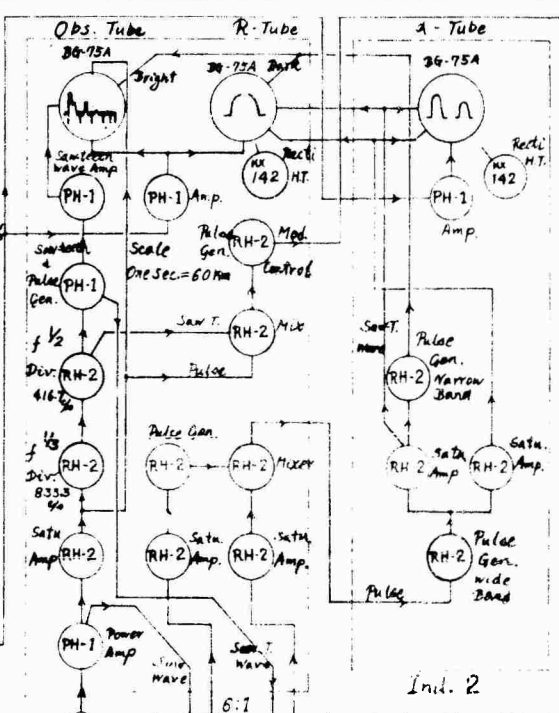 Obs. Tube
R-Tube
BG-75A
Bright
BG-75A
Dark
BG-75A
Sawteeth
Wave Amp
PH-1
PH-1
Amp.
Recti
KX
142
H.T.
PH-1
Amp.
Recti
KX
142
H.T.
Sawteeth
&
Pulse
Gen.
PH-1
Scale
One Sec. = 60 Km
Pulse
Gen.
RH-2
Mod.
Control
f 1/2
Div.
RH-2
Saw T.
RH-2
Mix
Pulse
Saw T.
Wave
Pulse
Gen.
Narrow
Band
RH-2
f 1/3
Div.
RH-2
Pulse Gen.
RH-2
RH-2
Mixer
RH-2
Satu.
Amp
RH-2
Satu.
Amp.
Satu
Amp
RH-2
RH-2
Satu.
Amp.
RH-2
Satu.
Amp.
RH-2
Pulse
Gen.
Wide
Band
Pulse
PH-1
Power
Amp
Sine
Wave
Saw T.
Wave
6:1
Ind. 2